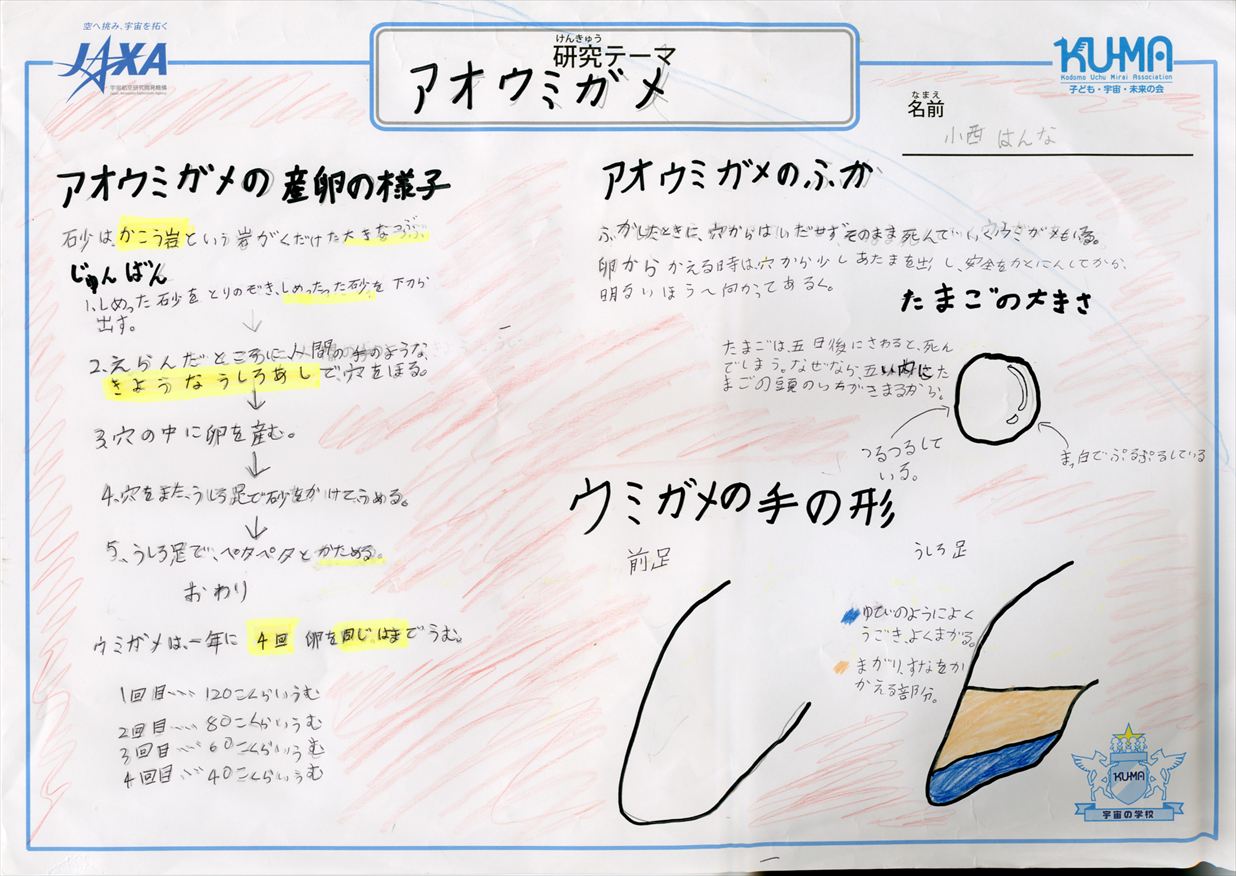 空へ挑み、宇宙を拓く
JAXA
宇宙航空研究開発機構
けんきゅう
研究テーマ
アオウミガメ
KU-MA
Kodomo Uchu Mirai Association
子ども・宇宙・未来の会
なまえ
名前
小西 はんな
アオウミガメの産卵の様子
石少は、かこう岩という岩がくだけた大きなつぶ。
じゅんばん
1、しめった石砂をとりのぞき、しめったった石砂を下から
出す。
2、えらんだところに、人間の手のような、
きようなうしろあしで、穴をほる。
3、穴の中に卵を産む。
4、穴をまた、うしろ足で砂をかけて、うめる。
5、うしろ足で、ペタペタとかためる。
おわり
ウミガメは、一年に 4回 卵を同じはまでうむ。
1回目・・・・120こくらいうむ
2回目・・・80こくらいうむ
3回目・・・60こくらいうむ
4回目・・・40こくらいうむ
アオウミガメのふか
ふかしたときに、穴からはいだせず、そのまま死んでいくウミガメもいる。
卵からかえる時は、穴から少しあたまを出し、安全をかくにんしてから、
明るいほうへ向かってあるく。
たまごの大きさ
たまごは、五日後にさわると、死ん
でしまう。なぜなら、五い内にた
まごの頭のいちがきまるから。
つるつるして
いる。
まっ白でぷるぷるしている
ウミガメの手の形
前足
うしろ足
ゆびのようによく
うごき、よくまがる。
まがり、すなをか
かえる部分。
KU-MA
宇宙の学校